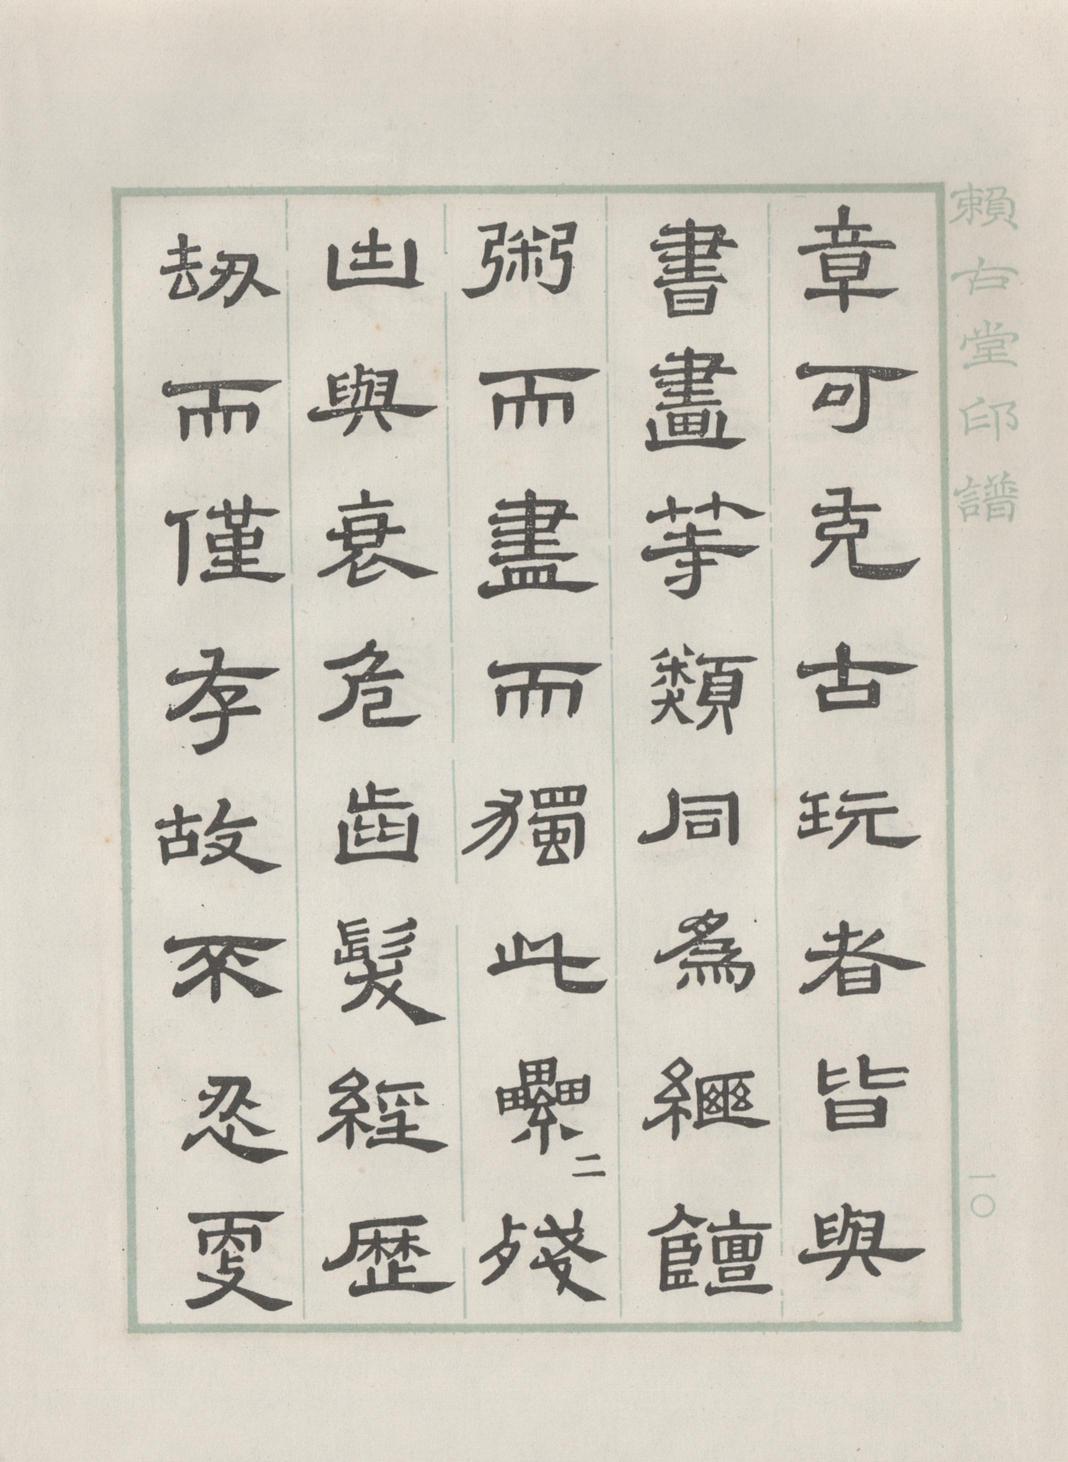 賴古堂印譜
章可克古玩者皆與
書畫等類同為繼饘
粥而盡而獨此纍二殘
凷與衰危齒髮經歷
劫而僅存故不忍
一〇